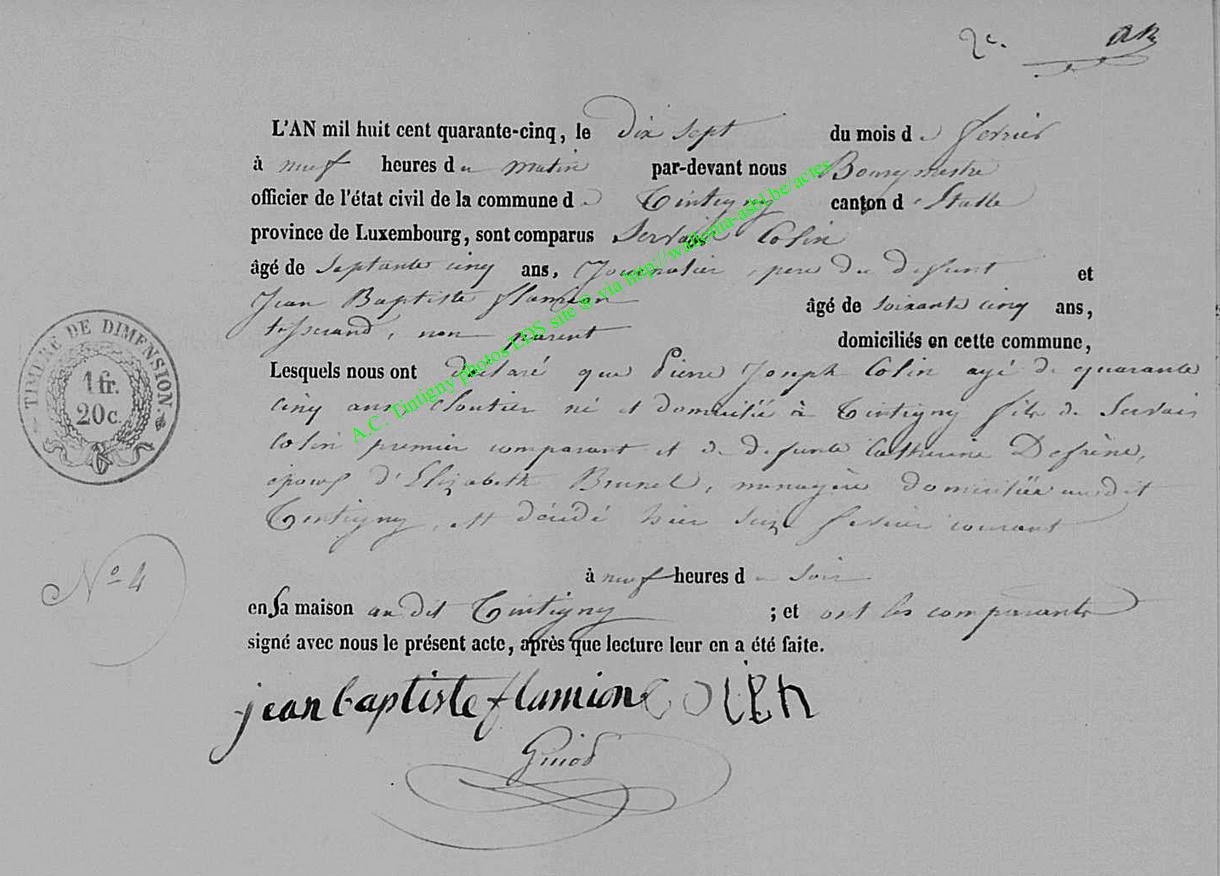 2c.
L'AN mil huit cent quarante-cinq, le dix sept du mois de fevrier
à neuf heures du matin par-devant nous Bourgmestre
officier de l'état civil de la commune de Tintigny canton d'Etalle
province de Luxembourg, sont comparus Servais Colin
âgé de septante cinq ans, Journalier, pere du defunt et
Jean Baptiste flamion âgé de soixante cinq ans,
tisserand, non parent domiciliés en cette commune,
Lesquels nous ont déclaré que Pierre Joseph Colin agé de quarante
cinq ans Cloutier né et domicilié à Tintigny fils de Servais
Colin premier comparant et de defunte Catherine Defrène,
époux d'Elizabeth Brunel, menagère domiciliée audit
Tintigny, est décédé hier seize fevrier courant
à neuf heures du soir
en sa maison audit Tintigny ; et ont les comparants
signé avec nous le présent acte, après que lecture leur en a été faite.
jean baptiste flamion Colin
TIMBRE DE DIMENSION
1 fr.
20 c.
No 4
A.C. Tintigny photos LDS site © via http://wallonia-asbl.be/actes